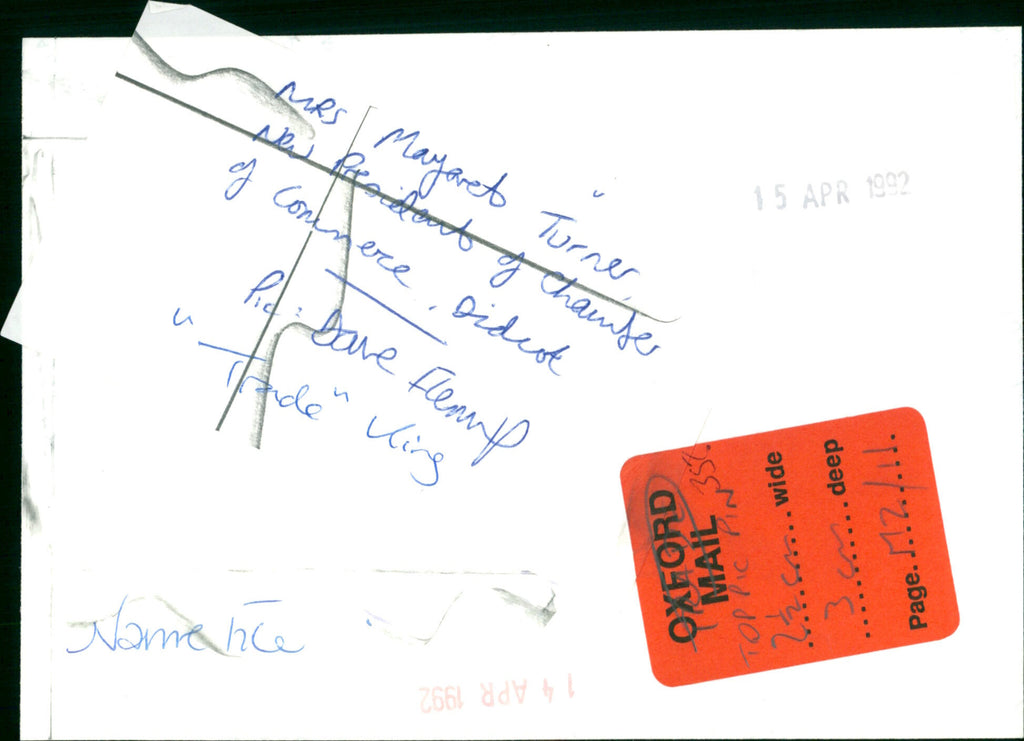 MRS Margaret Turner,
New President of Chamber
of Commerce, Didcot
Pic: Dave Fleming
"Trade" King
15 APR 1992
OXFORD
MAIL
TOP PIC PIN 35%
2½ cm wide
3 cm deep
Page. M2/11
Name tie
14 APR 1992